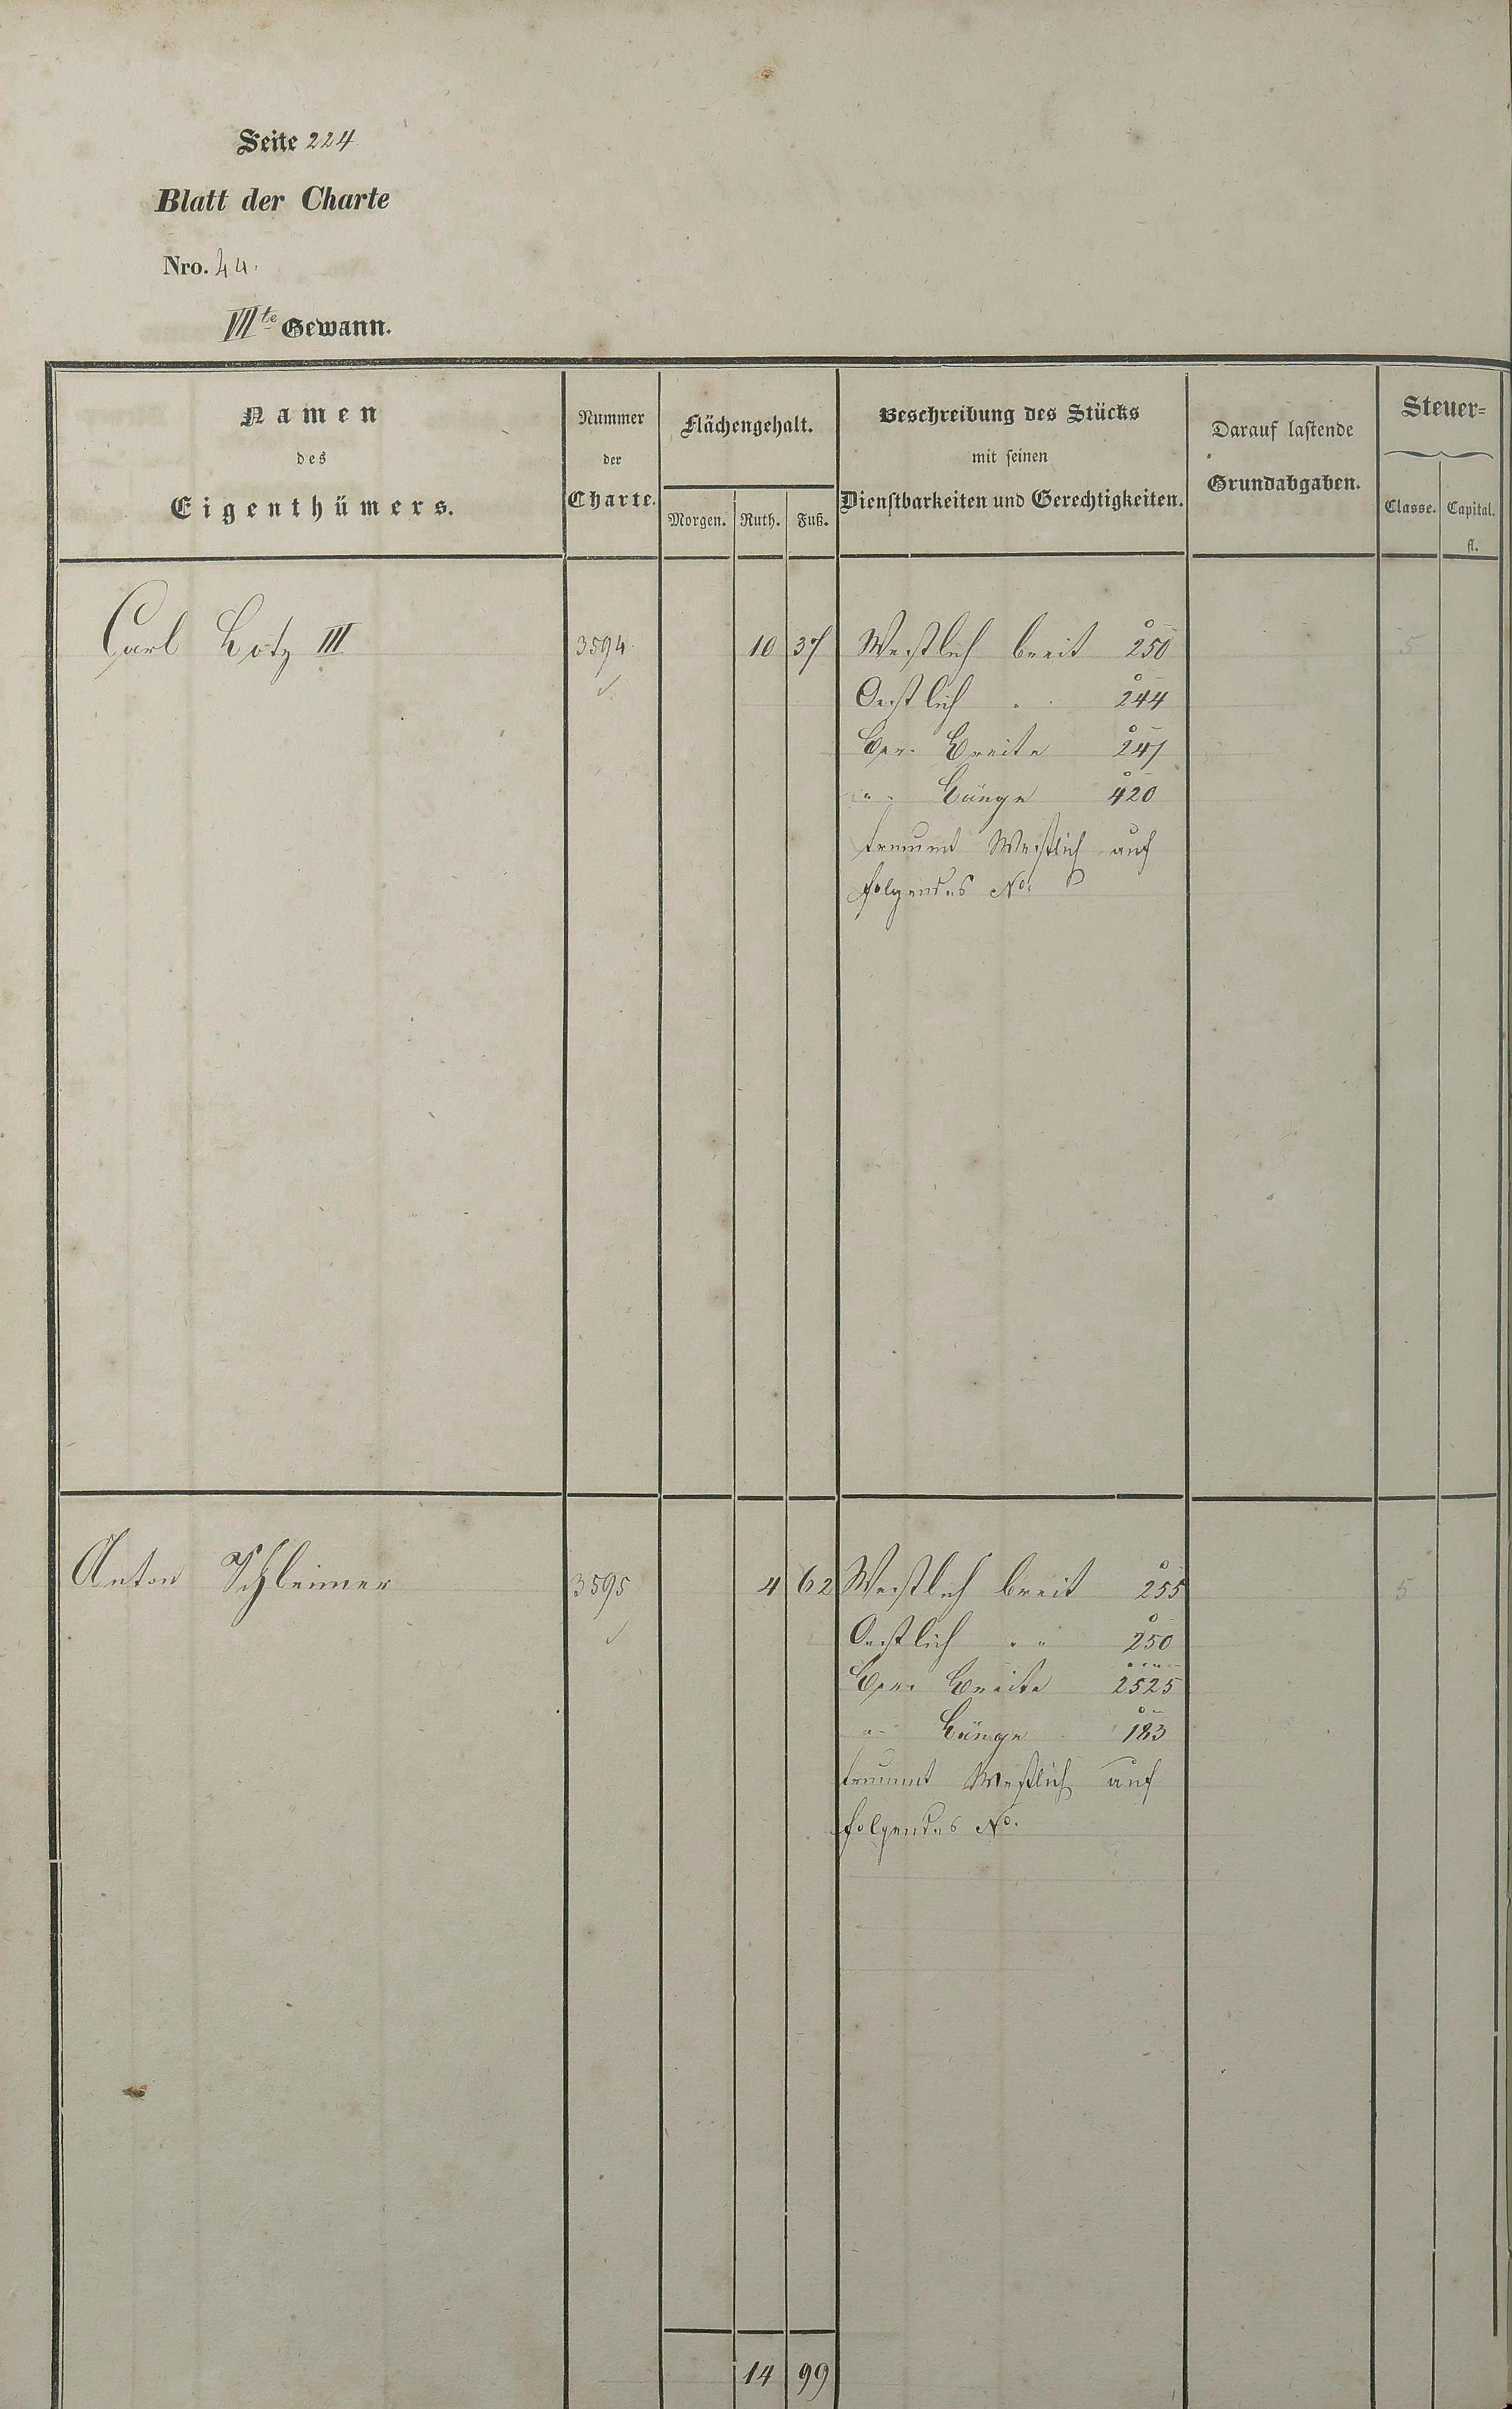 Seite 224
Blatt der Charte
Nro. 44.
VIIte Gewann.
Namen
des
Eigenthümers.
Nummer
der
Charte.
Flächengehalt.
Morgen. Ruth. Fuß.
Beschreibung des Stücks
mit seinen
Dienstbarkeiten und Gerechtigkeiten.
Darauf lastende
Grundabgaben.
Steuer=
Classe. Capital.
fl.
Carl Lotz III 3594. 10 37 Westlich breit 250 5
Oestlich " 244
Ber. Breite 247
" Länge 420
trennt Westlich auf
folgendes No.
Anton Schleimer 3595 4 62 Westlich breit 255 5
Oestlich " " 250
Ber. Breite 2525
" Länge 183
Westlich auf
folgendes No.
14 99